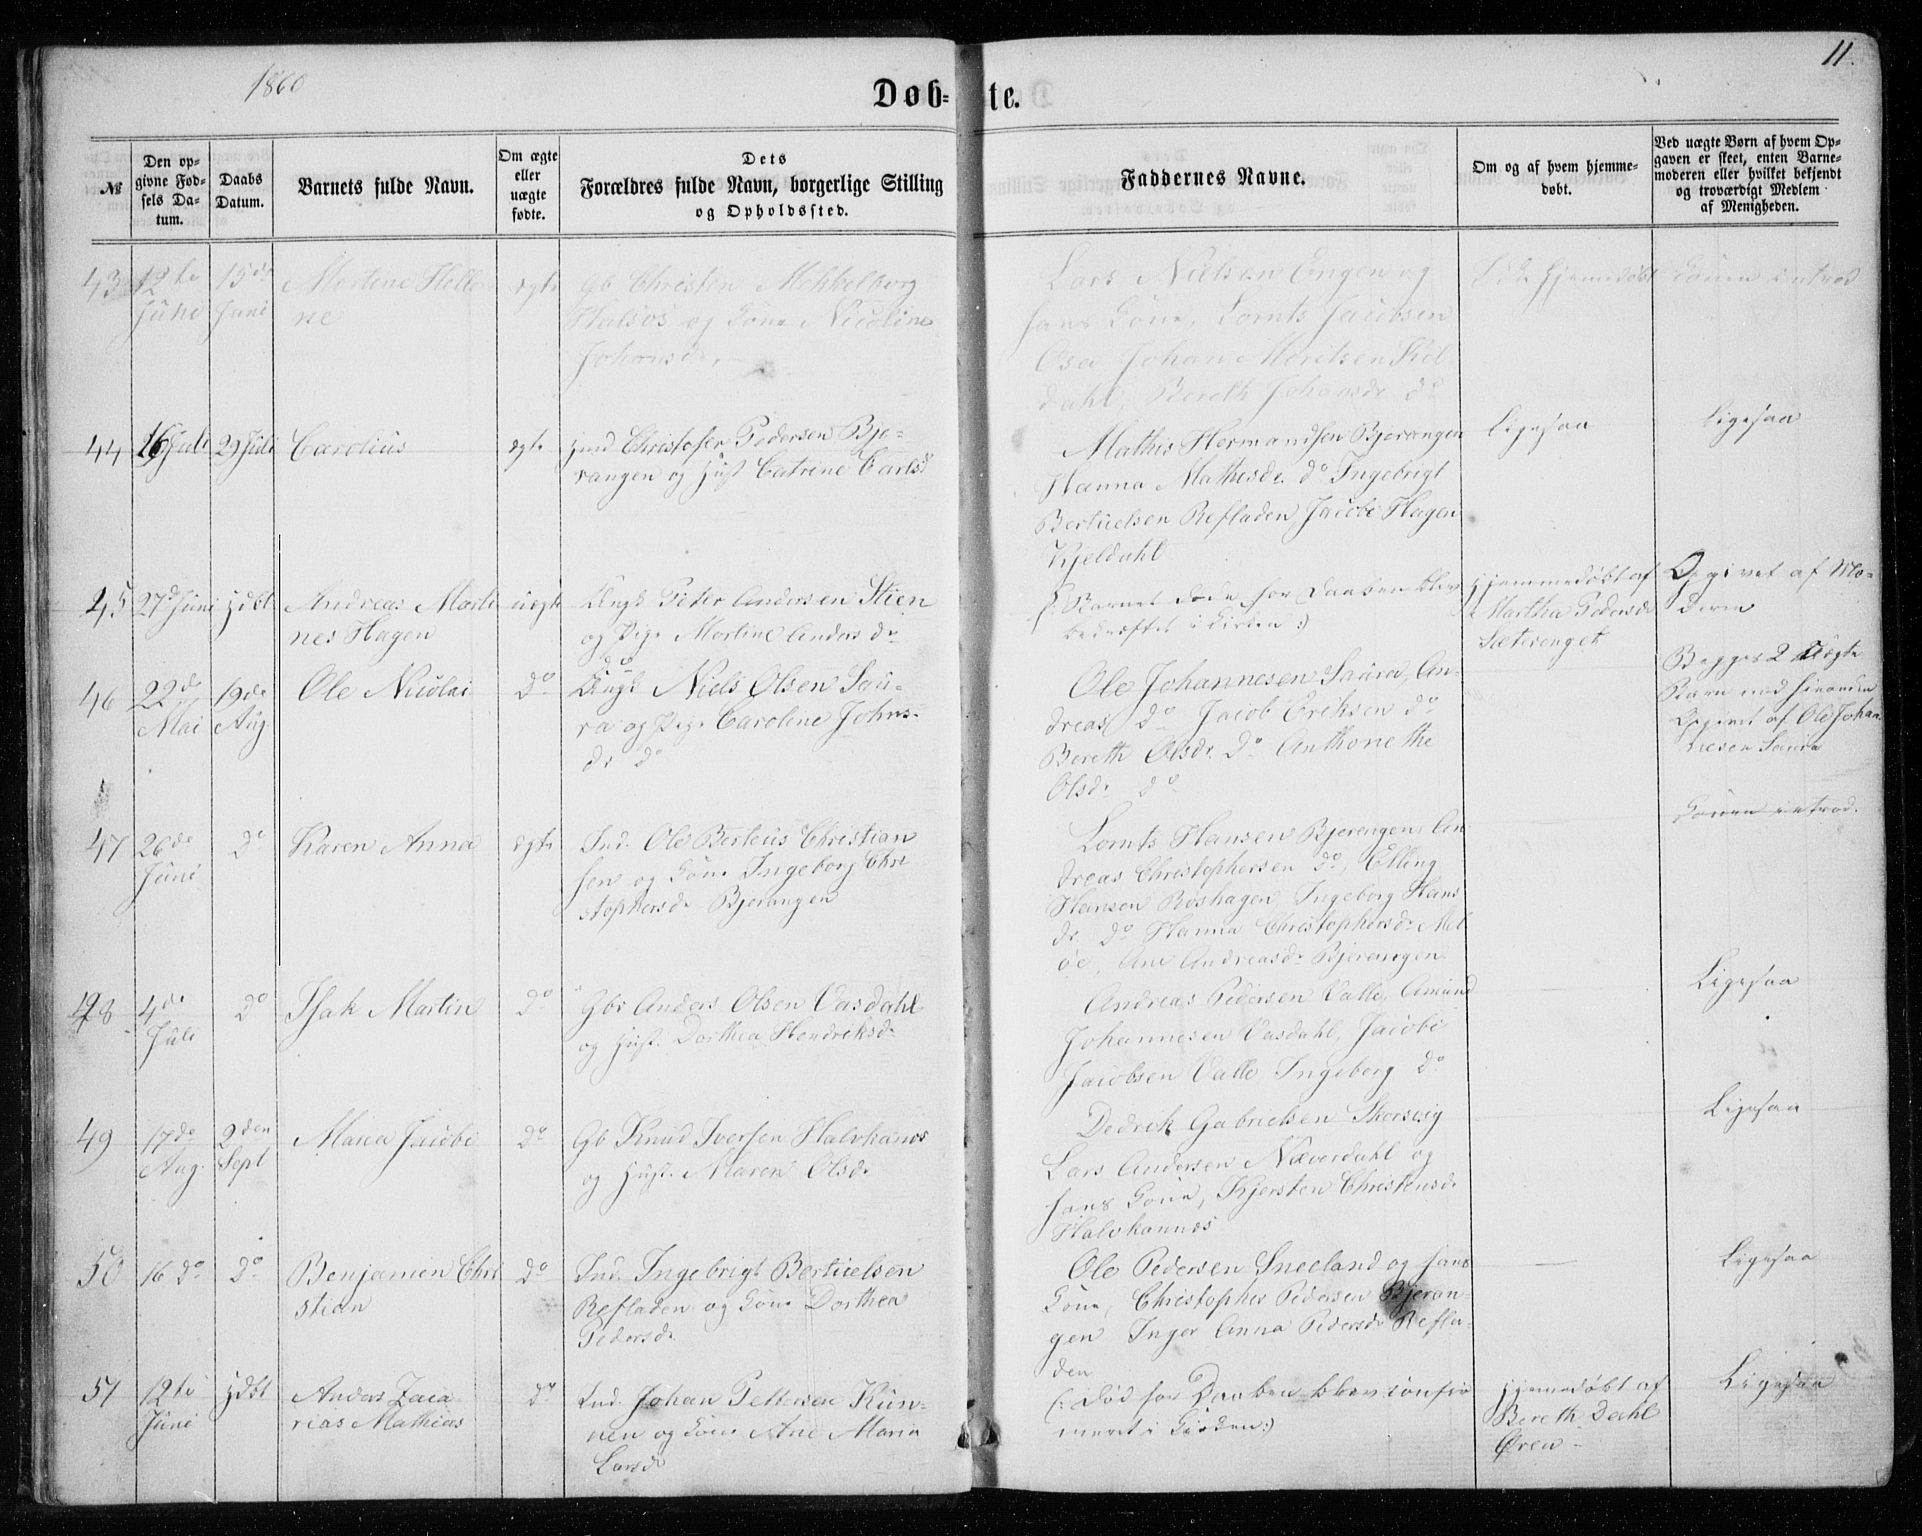 1860
Døb-te.
11.
№
Den op-
givne Fød-
sels Da-
tum.
Daabs
Datum.
Barnets fulde Navn.
Om ægte
eller
uægte
fødte.
Dets
Forældres fulde Navn, borgerlige Stilling
og Opholdssted.
Faddernes Navne.
Om og af hvem hjemme-
døbt.
Ved uægte Børn af hvem Op-
gaven er skeet, enten Barne-
moderen eller hvilket bekjendt
og troværdigt Medlem
af Menigheden.
43 12te 15de Mortine Helle- ægte Gb Christen Mekkelborg
Juni Juni ne Halsos og Kone Nicoline
Johansd.
Lars Nielsen Engen og
hans Kone, Lornts Jacobsen
Osa Johan Moritsen Kil-
dahl, Bereth Johansdr do
Ikke hjemmedøbt
Konen introd
44 16 Juli 29 Juli Carolius ægte Christofer Pedersen Bje-
rangen og Hust Catrine Carlsd
Mathis Hermandsen Bjerangen
Hanna Mathisdr. do Ingebrigt
Bertuelsen Refladen, Jacobi Hagen
Kjeldahl
Ligesaa
Ligesaa
45 27de Juni hjdbt Andreas Marti- uægte Ungk Peter Andersen Stien
nes Hagen og Pige Martine Andersdr
do
(: Barnet døde før Daaben blev
bekræftet i Kirken :)
Hjemmedøbt af
Martha Pedersdr
Sætervenget
Opgivet af Mo-
deren
46 22de 19de Ole Nicolai do Ungk Niels Olsen Sau-
Mai Aug ra og Pige Caroline Johns-
dr do
Ole Johannesen Saura, An-
dreas do Jacob Eriksen do
Bereth Olsdr. do Anthonethe
Olsdr do
Begges 2 Uægte
Barn med hinanden
Opgivet af Ole Johan
nesen Saura
47 26de do Karen Anna ægte Ind. Ole Berteus Christian
Juni sen og Kone Ingeborg Chri
stophersdr Bjerangen
Lornts Hansen Bjerangen, An
dreas Christophersen do, Elling
Hansen Roshagen, Ingeborg Hans
dr. do Hanna Christophersdr Mel
øe, Ane Andreasdr Bjerangen
Konen introd.
48 4de do Isak Martin do Gbr Anders Olsen Vasdahl
Juli og Hust. Dorthea Hendriksdr
Andreas Pedersen Valle, Amund
Johannesen Vasdahl, Jacobi
Jacobsen Valle, Ingeborg do
Ligesaa
49 17de 2den Maria Jacobi do Gb Knud Iversen Halvkanos
Aug. Sept og Hust. Maren Olsdr
Dedrik Gabrielsen Skorsvig
Lars Andersen Næverdahl og
hans Kone, Kjersten Christensdr
Halvkannos
Ligesaa
50 16 do do Benjamin Chri do Ind. Ingebrigt Bertuelsen
stian Refladen og Kone Dorthea
Pedersdr
Ole Pedersen Sneeland og hans
Kone, Christopher Pedersen Bjeran-
gen Inger Anna Pedersdr Refla-
den
Ligesaa
51 12te hjdbt Anders Zaca do Ind. Johan Pettersen Kun-
Juni rias Mathias nen og Kone Ane Maria
Larsdr
(: Død før Daaben blev confir
meret i Kirken :)
Hjemmedøbt af
Bereth Dahl
Øren
Ligesaa